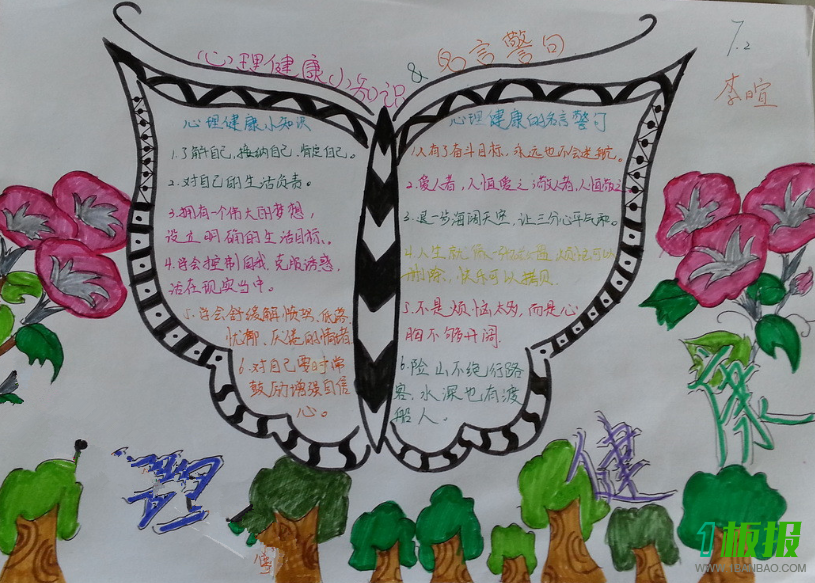 心理健康小知识 & 名言警句
7.2
李暄
心理健康小知识
1.了解自己,接纳自己,肯定自己。
2.对自己的生活负责。
3.拥有一个伟大的梦想,
设立明确的生活目标。
4.学会控制自我,克服诱惑,
活在现实当中。
5.学会舒缓解愤怒、低落
忧郁、厌倦的情绪
6.对自己要时常
鼓励增强自信
心。
心理健康的名言警句
1.人有了奋斗目标,永远也不会迷航。
2.爱人者,人恒爱之;敬人者,人恒敬之
3.退一步海阔天空,让三分心平气和。
4.人生就像一张
删除,快乐可以拷贝。
5.不是烦恼太多,而是心
胸不够开阔
6.险山不绝行路
客,水深也有渡
船人。
康
健
1板报
WWW.1BANBAO.COM